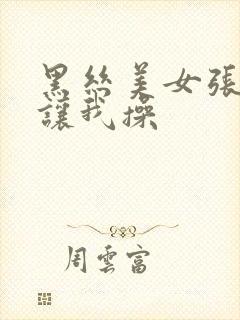 黑絲美女張
讓我操
周雲富